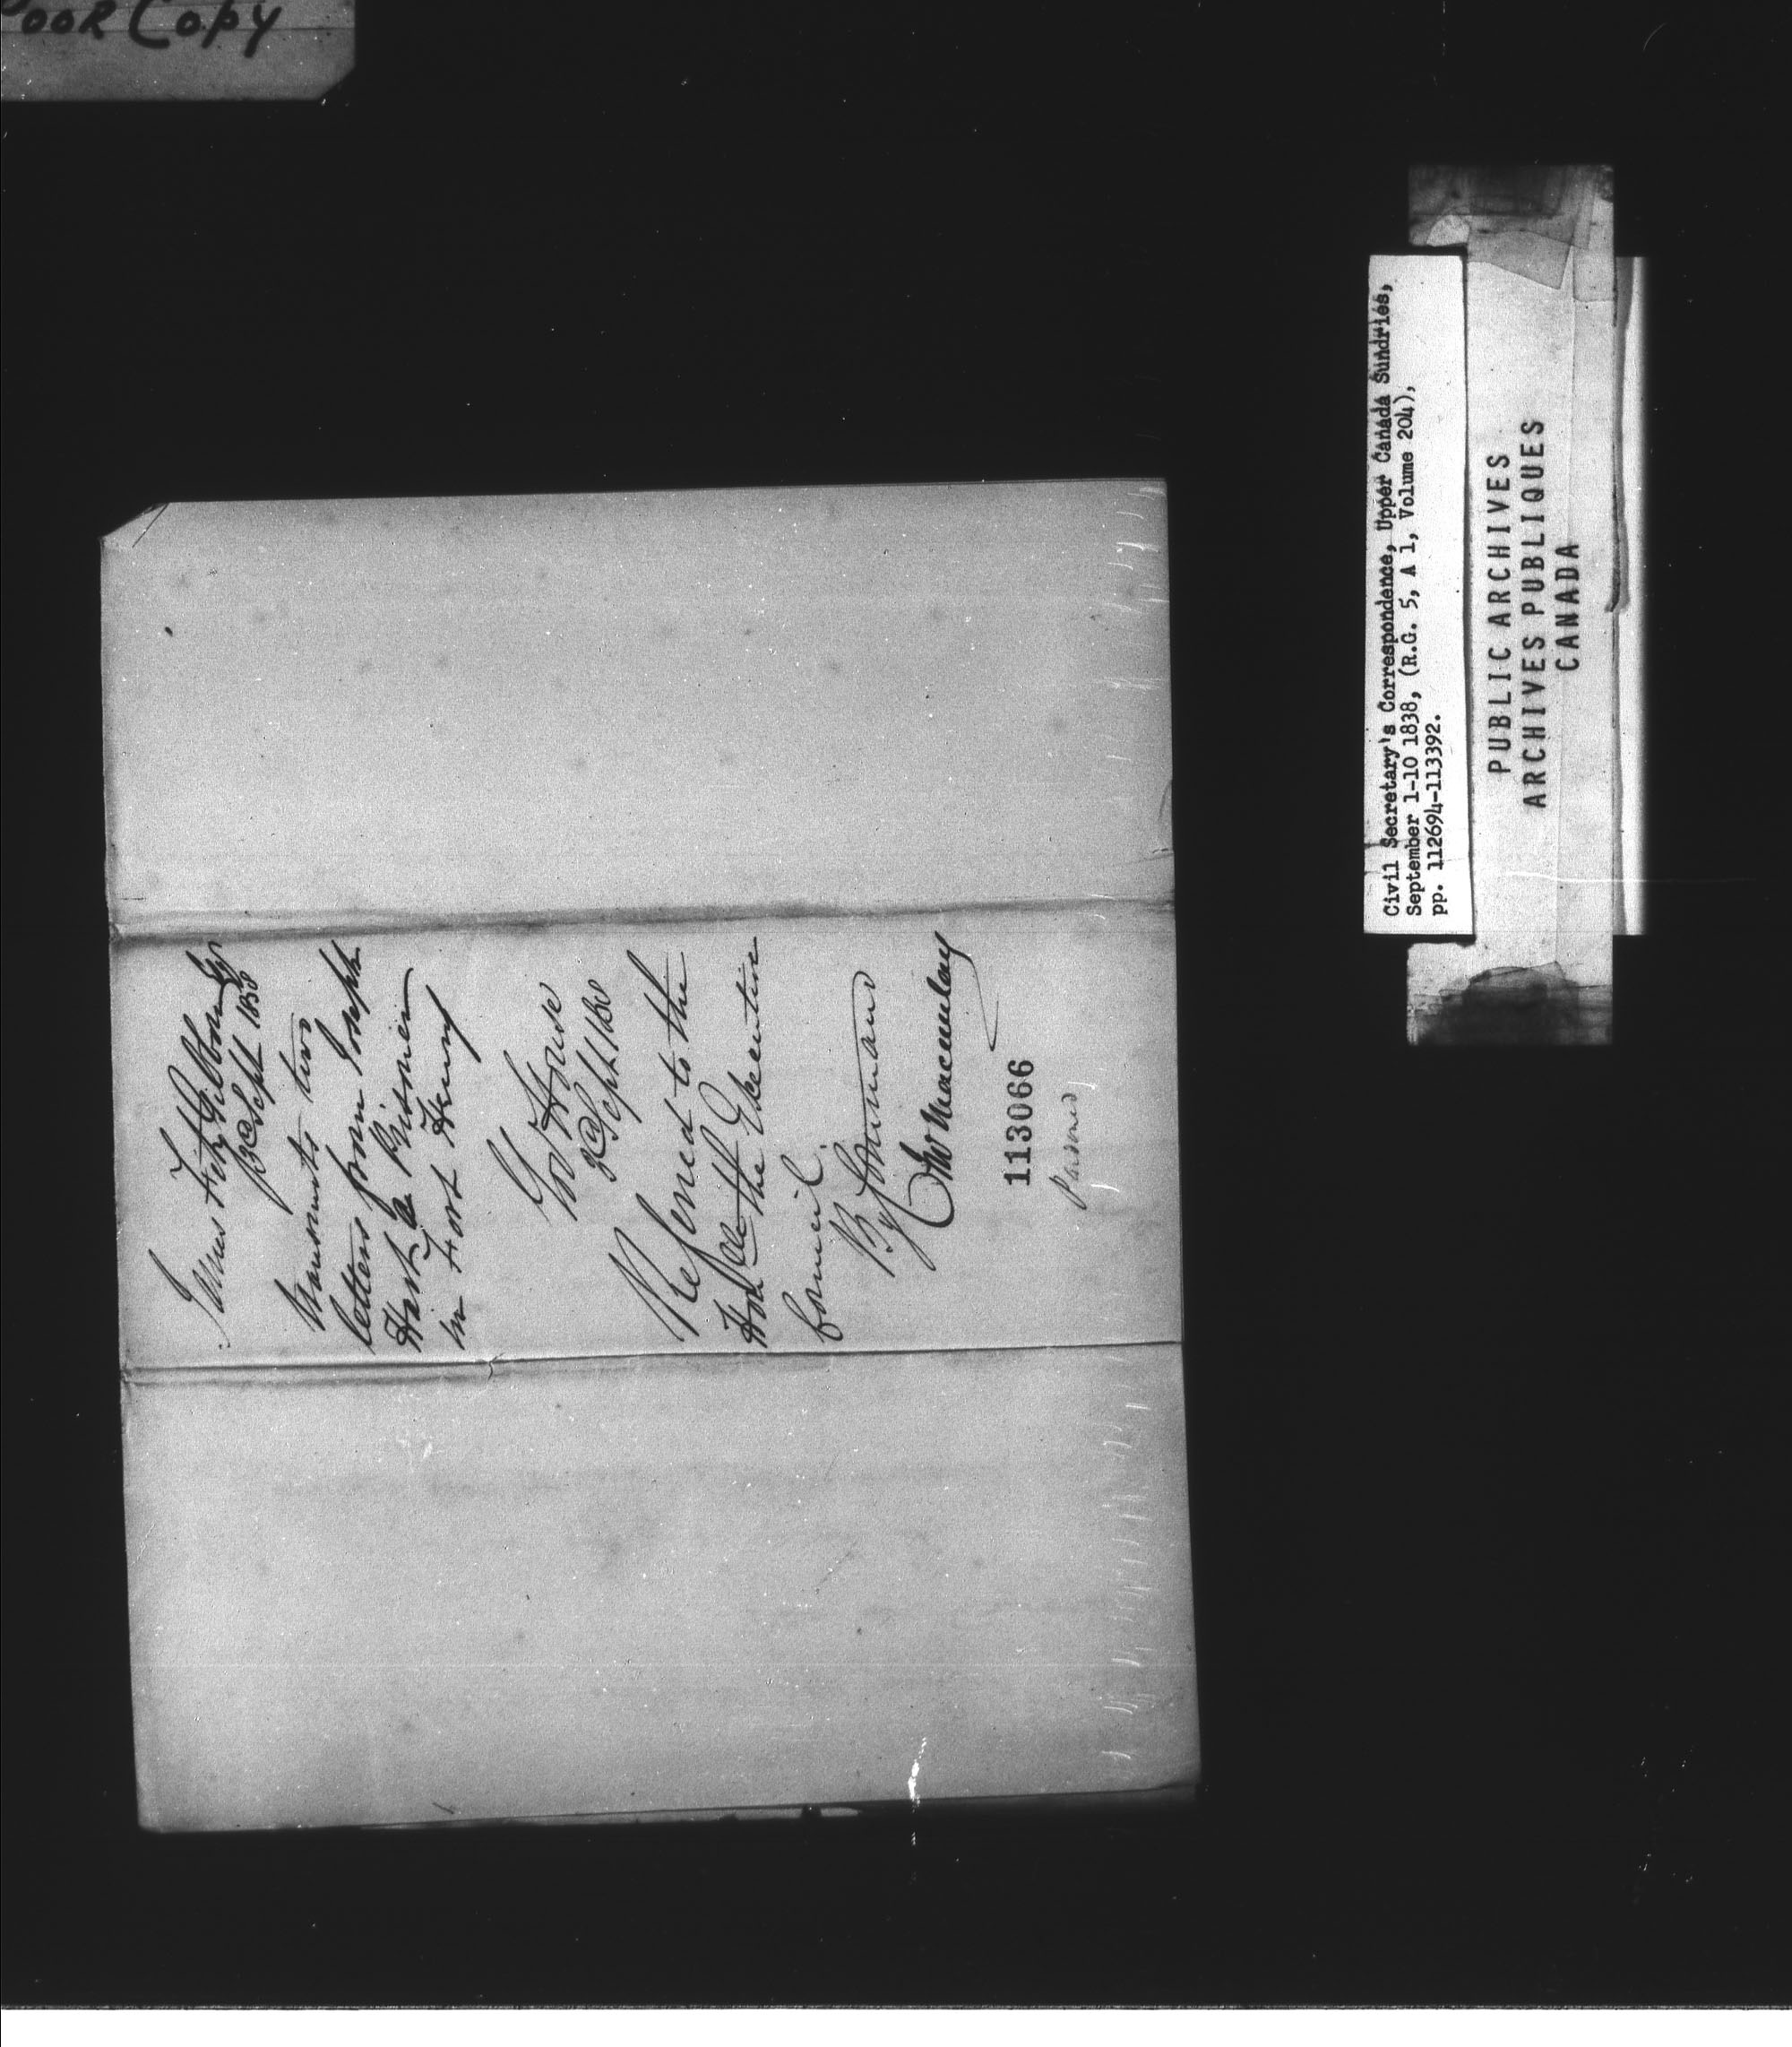 Poor Copy
James FitzGibbon Esqr
3d Sept 1838
Transmits two
letters from Joseph
Hart a Prisoner
in Fort Henry
Govt House
3d Sept 1838
Referred to the
Honble the Executive
Council.
By Command
Jno Macaulay
113066
Pardoned
Civil Secretary's Correspondence, Upper Canada Sundries,
September 1-10 1838, (R.G. 5, A 1, Volume 204),
pp. 112694-113392.
PUBLIC ARCHIVES
ARCHIVES PUBLIQUES
CANADA